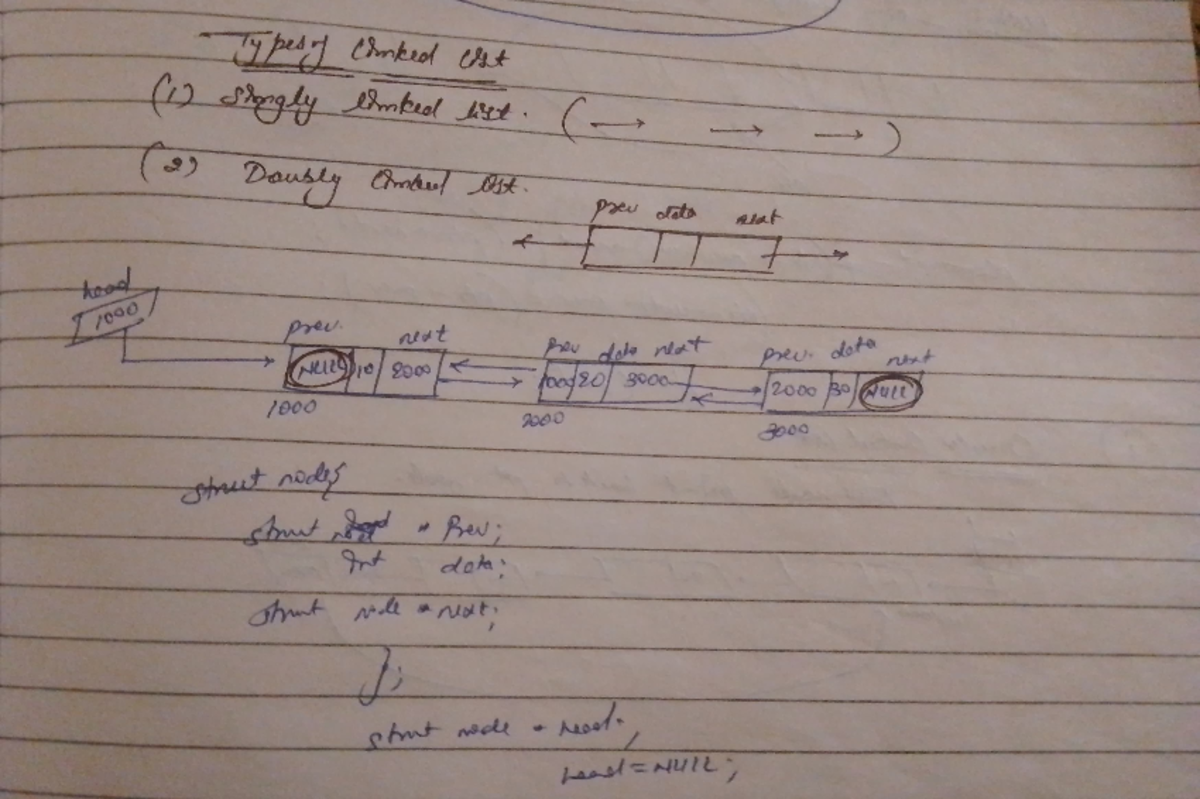 Types of linked list
(1) Singly linked list. ( → → → )
(2) Doubly linked list.
prev data next
head
1000
prev. next
NULL 10 2000
1000
prev data next
20 3000
2000
prev. data next
2000 30 NULL
3000
struct node{
struct * Prev;
Int data;
struct node * next;
};
struct node * head;
head = NULL;